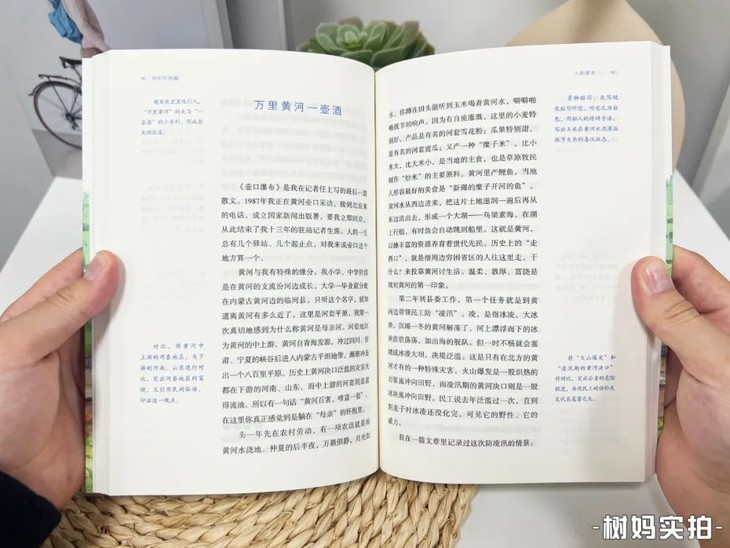 万里黄河一壶酒
《壶口瀑布》是我在记者任上写的最后一篇
散文。1987年我正在黄河壶口采访、接到北京来
的电话,成立国家新闻出版署,要我立即到京,
从此结束了我十三年的驻站记者生涯。人的一生
总有几个驿站、几个起点,对我来说壶口这个
地方算一个。
黄河与我有特殊的缘分。我小学、中学阶段
是在黄河的支流汾河边成长,大学一毕业就分配
在内蒙古黄河边的临河县,只听这个名字,就知
道离黄河有多么近了。这里是河套平原,我第一
次真切地感到为什么称黄河是母亲河。河套地区
为黄河的中上游,黄河自青海发源,冲过四川、甘
肃、宁夏的峡谷后进入内蒙古平坦地带,
出一个八百里平原。历史上黄河决口泛滥的灾害大
都在下游的河南、山东,而中上游的河套则富甚
得流油。所以有一句话“黄河百害,唯富一套”。
在这里你真正感觉到是躺在“母亲”的怀抱里。
头一年先在农村劳动,有一项农活就是
黄河水浇地。仲夏的后半夜,万籁俱静,月光如
对比,将黄河中
上游的河套地区,与下
游的河南、山东进行对
比,突出河套地区的富
饶,又引用民间俗语,
印证这一观点。
水,你蹲在田头能听到玉米喝着黄河水,唧唧啪
啪拔节的响声。因为有自流灌溉,这里的小麦特
别好,产品是有名的河套雪花粉;瓜果特别甜,
是有名的河套蜜瓜;又产一种“糜子米”,比小
米大,比大米小,是当地的主食,也是草原牧民
制作“炒米”的主要原料。黄河里产鲤鱼,当地
人形容最好的美食是“新碾的糜子开河的鱼”。
黄河水从西边进来,把这片土地滋润一遍后再从
东边流出去,形成一个大湖——乌梁素海。在湖
上行船,有时鱼会自动跳到船里。这就是黄河,
以她丰富的资源养育着世代先民。历史上的“走
西口”,就是借周边穷困省区的人往这里走,干
什么?来投靠黄河讨生活。温柔、敦厚、富饶是
我对黄河的第一印象。
第二年到县委工作,第一个任务就是到黄
河边带领民工防“凌汛”。凌,是指冰凌、大冰
块。沉睡一冬的黄河解冻了,河上漂浮而下的冰
块浩浩荡荡,如出海的舰队。但一时不畅就会塞
堵成冰凌大坝,决堤泛滥。这是只有在北方的黄
河才有的一种特殊灾害。火山爆发是一股炽热的
岩浆流冲向田野,而凌汛期的黄河决口则是一股
冰块流冲向田野。民工说去年泛滥过一次,直到
割麦子时冰凌还没化完,可见它的野性、它的
威力。
我在一篇文章里记录过这次防凌汛的情景:
将“火山爆发”和
-树妈实拍-